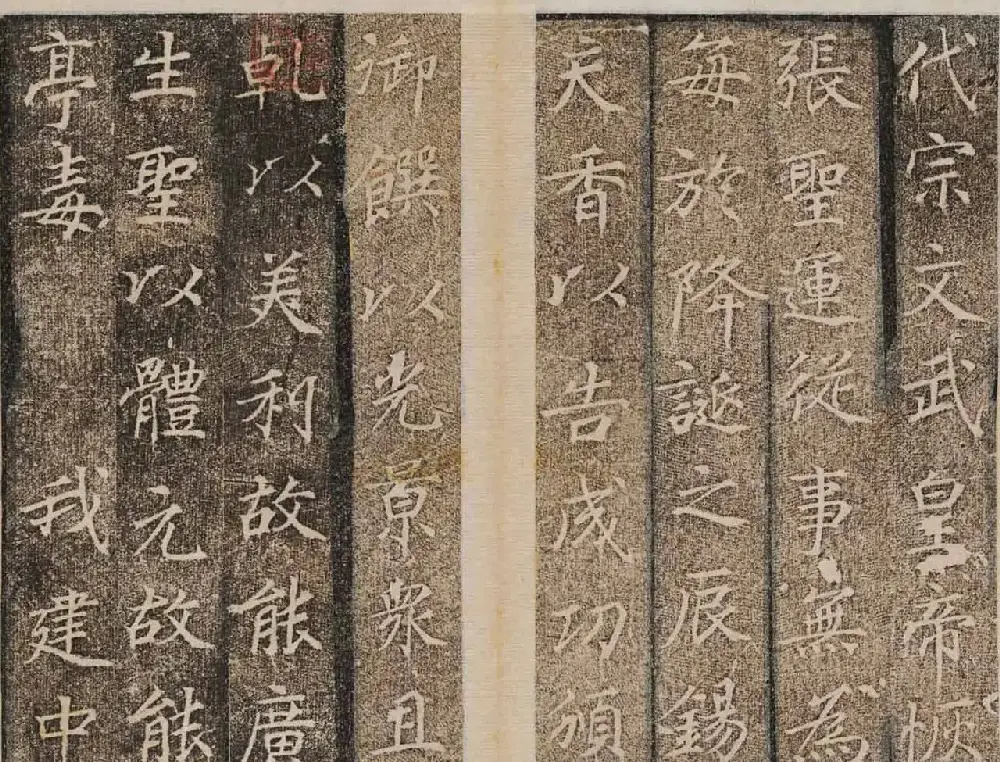 代宗文武皇帝恢
張聖運從事無為
每於降誕之辰錫
天香以告成功頒
御饌以光景衆且
乾以美利故能廣
生聖以體元故能
亭毒 我建中